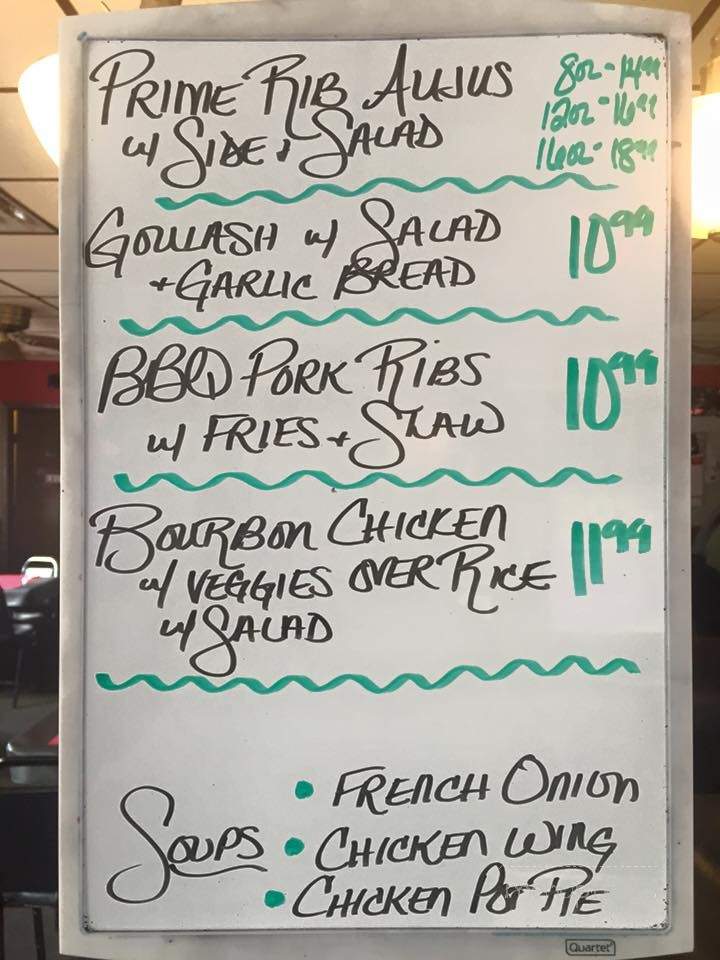 PRIME RIB AUJUS
w/ SIDE + SALAD
8oz - 14.99
12oz - 16.99
16oz - 18.99
GOULASH w/ SALAD
+ GARLIC BREAD
10.99
BBQ PORK RIBS
w/ FRIES + SLAW
10.99
BOURBON CHICKEN
w/ VEGGIES OVER RICE
w/ SALAD
11.99
SOUPS
• FRENCH ONION
• CHICKEN WING
• CHICKEN POT PIE
Quartet